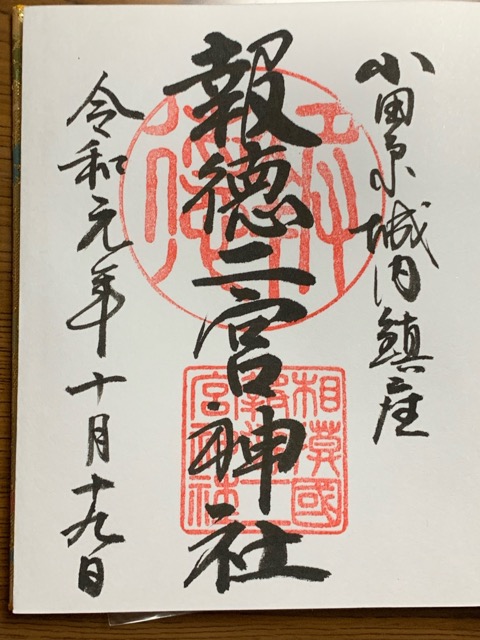 小田原城内鎮座
報徳二宮神社
令和元年十月十九日
相模國
報徳二
宮神社